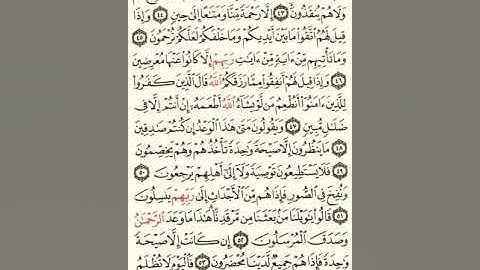 وَلَا هُمْ يُنقَذُونَ ٤٣ إِلَّا رَحْمَةً مِّنَّا وَمَتَـٰعًا إِلَىٰ حِينٍ ٤٤ وَإِذَا
قِيلَ لَهُمُ ٱتَّقُوا۟ مَا بَيْنَ أَيْدِيكُمْ وَمَا خَلْفَكُمْ لَعَلَّكُمْ تُرْحَمُونَ ٤٥
وَمَا تَأْتِيهِم مِّنْ ءَايَةٍ مِّنْ ءَايَـٰتِ رَبِّهِمْ إِلَّا كَانُوا۟ عَنْهَا مُعْرِضِينَ
٤٦ وَإِذَا قِيلَ لَهُمْ أَنفِقُوا۟ مِمَّا رَزَقَكُمُ ٱللَّهُ قَالَ ٱلَّذِينَ كَفَرُوا۟
لِلَّذِينَ ءَامَنُوٓا۟ أَنُطْعِمُ مَن لَّوْ يَشَآءُ ٱللَّهُ أَطْعَمَهُۥٓ إِنْ أَنتُمْ إِلَّا فِى
ضَلَـٰلٍ مُّبِينٍ ٤٧ وَيَقُولُونَ مَتَىٰ هَـٰذَا ٱلْوَعْدُ إِن كُنتُمْ صَـٰدِقِينَ
٤٨ مَا يَنظُرُونَ إِلَّا صَيْحَةً وَٰحِدَةً تَأْخُذُهُمْ وَهُمْ يَخِصِّمُونَ
٤٩ فَلَا يَسْتَطِيعُونَ تَوْصِيَةً وَلَآ إِلَىٰٓ أَهْلِهِمْ يَرْجِعُونَ ٥٠
وَنُفِخَ فِى ٱلصُّورِ فَإِذَا هُم مِّنَ ٱلْأَجْدَاثِ إِلَىٰ رَبِّهِمْ يَنسِلُونَ
٥١ قَالُوا۟ يَـٰوَيْلَنَا مَنۢ بَعَثَنَا مِن مَّرْقَدِنَا ۜ هَـٰذَا مَا وَعَدَ ٱلرَّحْمَـٰنُ
وَصَدَقَ ٱلْمُرْسَلُونَ ٥٢ إِن كَانَتْ إِلَّا صَيْحَةً
وَٰحِدَةً فَإِذَا هُمْ جَمِيعٌ لَّدَيْنَا مُحْضَرُونَ ٥٣ فَٱلْيَوْمَ لَا تُظْلَمُ